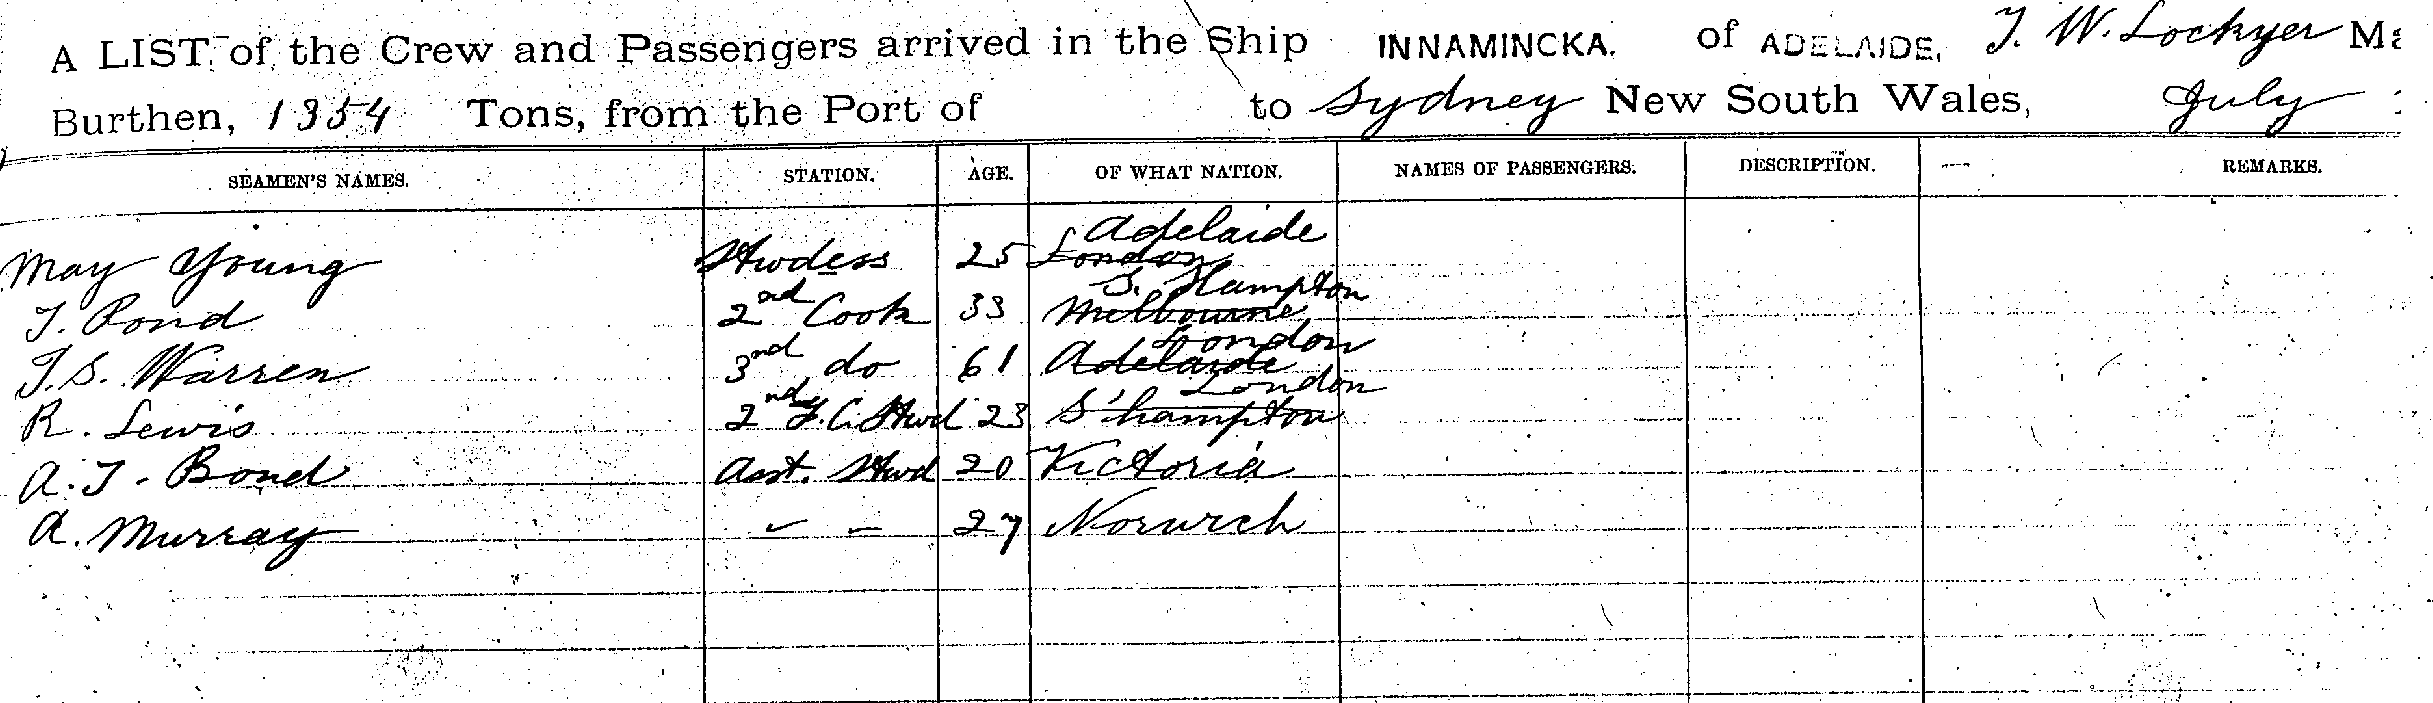 A LIST of the Crew and Passengers arrived in the Ship INNAMINCKA. of ADELAIDE, T. W. Lockyer Ma
Burthen, 1354 Tons, from the Port of to Sydney New South Wales, July
SEAMEN'S NAMES. STATION. AGE. OF WHAT NATION. NAMES OF PASSENGERS. DESCRIPTION. REMARKS.
Adelaide
May Young Stwdess 25 London
S. Hampton
T. Pond 2nd Cook 33 Melbourne
London
T.S. Warren 3nd do 61 Adelaide
London
R. Lewis 2nd F.C. Stwd 23 S'hampton
A.T. Bond Asst. Stwd 20 Victoria
A. Murray 27 Norwich